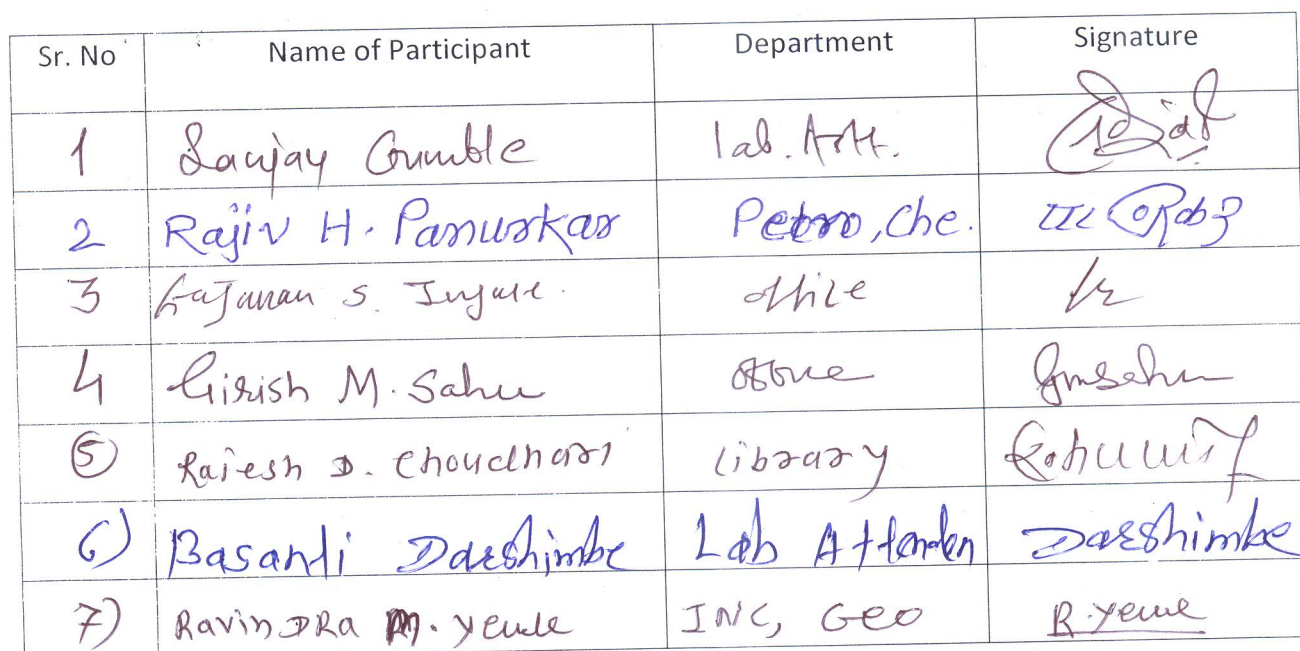 Sr. No Name of Participant Department Signature
1 Sanjay Gumble lab. Att.
2 Rajiv H. Panurkar Petro, Che.
3 Gajanan S. Ingale office
4 Girish M. Sahu office Gmsahu
5 Rajesh D. Choudhari Library
6) Basanti Darshimbe Lab Attenden Darshimbe
7) RavinDRa M. Yewle INC, Geo R.Yewle